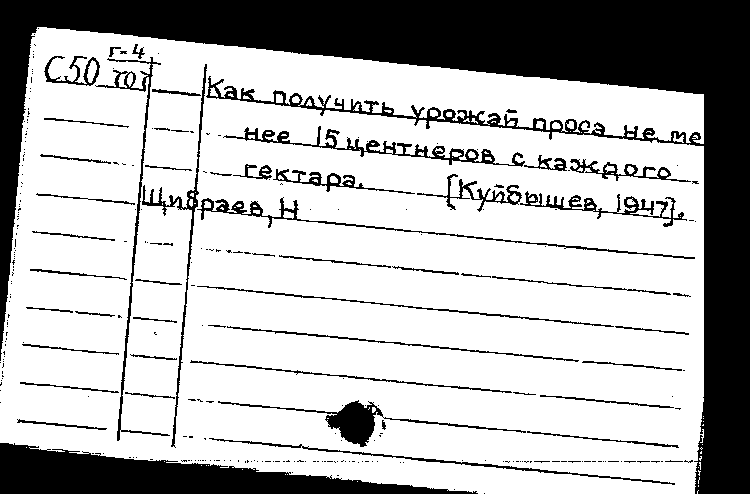 С50 Г-4
101
Как получить урожай проса не ме
нее 15 центнеров с каждого
гектара. [Куйбышев, 1947].
Щибраев, Н